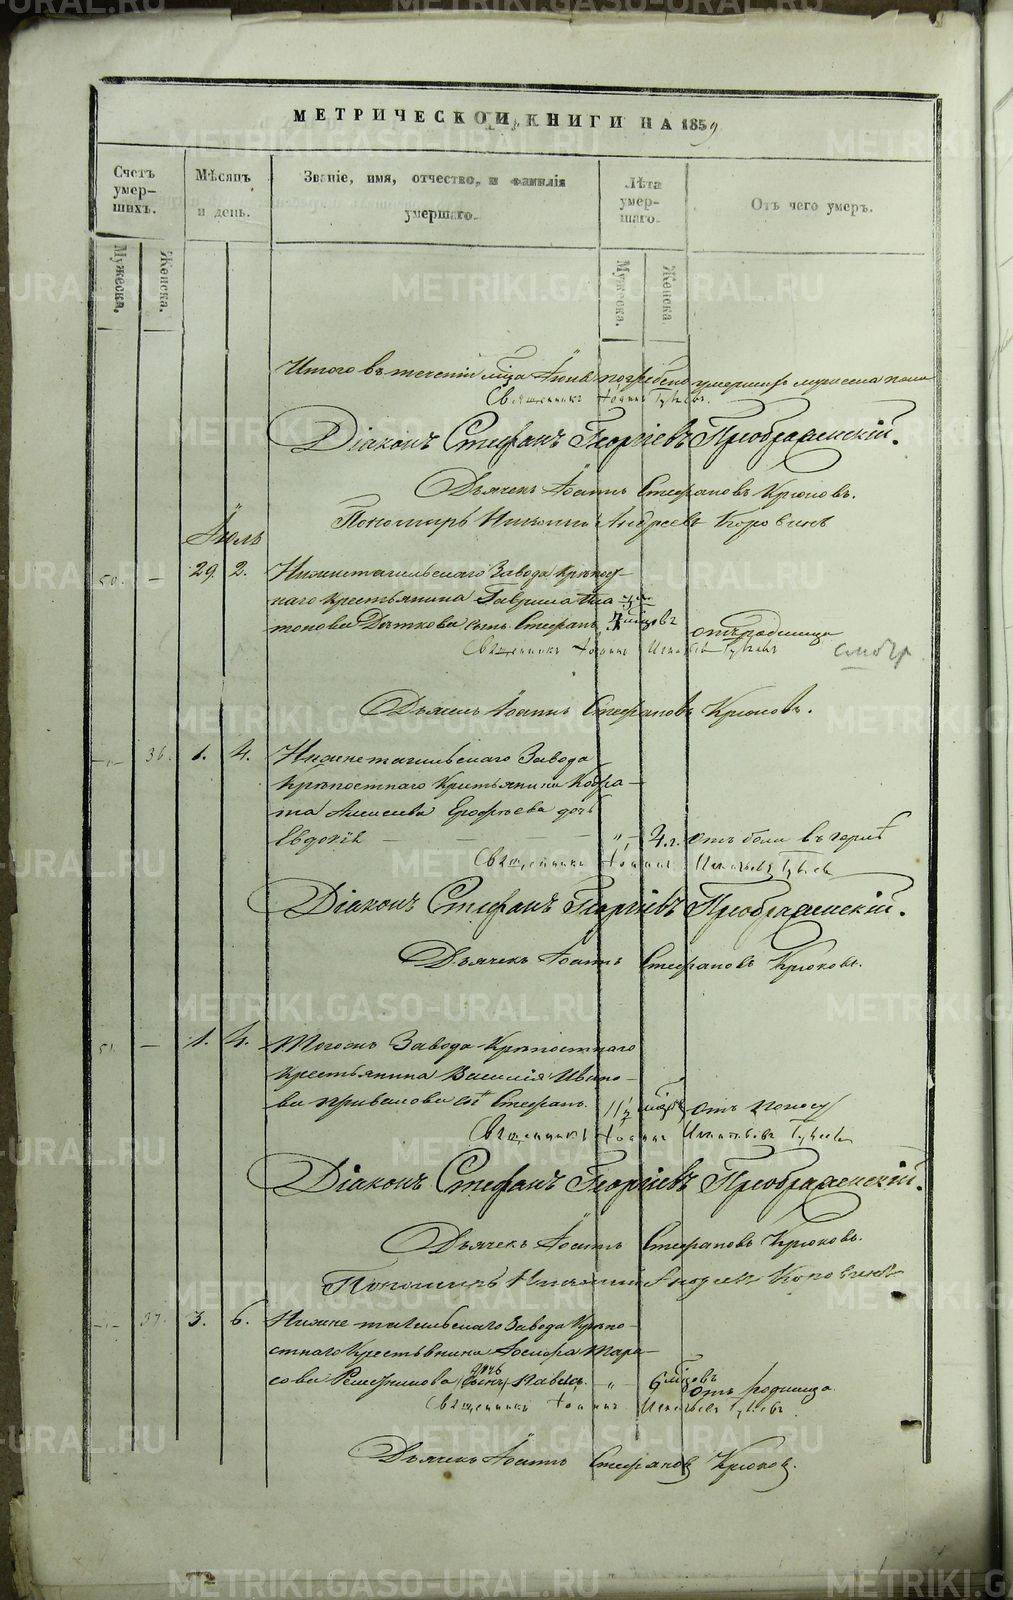 МЕТРИЧЕСКОЙ КНИГИ НА 1859
Счетъ умер-шихъ.
Мѣсяцъ и день.
Званіе, имя, отчество, и фамилія умершаго.
Лѣта умер-шаго.
Отъ чего умеръ.
Мужеска.
Женска.
Мужеска.
Женска
Итого въ теченіи мѣца Іюня погребено умершихъ мужеска пола
Священникъ Іоаннъ
Діаконъ Стефанъ Георгіевъ Преображенскій.
Дьячекъ Іоаннъ Стефановъ Крюковъ.
Пономарь Андреевъ Коровинъ
Іюль
50. — 29. 2. Нижнетагильскаго Завода крѣпост-
наго крестьянина Гаврила Пла-
тонова сынъ Стефанъ мѣсцовъ
отъ родимца
Священникъ Іоаннъ Игнатьевъ
Дьячекъ Іоаннъ Стефановъ Крюковъ.
36. 1. 4. Нижнетагильскаго Завода
Крѣпостнаго Крестьянина Кодра-
та Алексѣева Ерофѣева дочь
Евдокія — — — „ 4.г. отъ боли въ горлѣ
Священникъ Іоаннъ Игнатьевъ
Діаконъ Стефанъ Георгіевъ Преображенскій.
Дьячекъ Іоаннъ Стефановъ Крюковъ.
51. — 1. 4. Тогожъ Завода Крѣпостнаго
Крестьянина Василія Ивано-
ва Привалова сынъ Стефанъ. отъ поносу
Священникъ Іоаннъ Игнатьевъ
Діаконъ Стефанъ Георгіевъ Преображенскій.
Дьячекъ Іоаннъ Стефановъ Крюковъ.
Пономарь Андреевъ Коровинъ
37. 3. 6. Нижнетагильскаго Завода Крѣпо-
стнаго Крестьянина Тара-
сова дочь „ 6 мѣсцовъ отъ родимца.
Священникъ Іоаннъ Игнатьевъ
Дьячекъ Іоаннъ Стефановъ Крюковъ.
METRIKI.GASO-URAL.RU